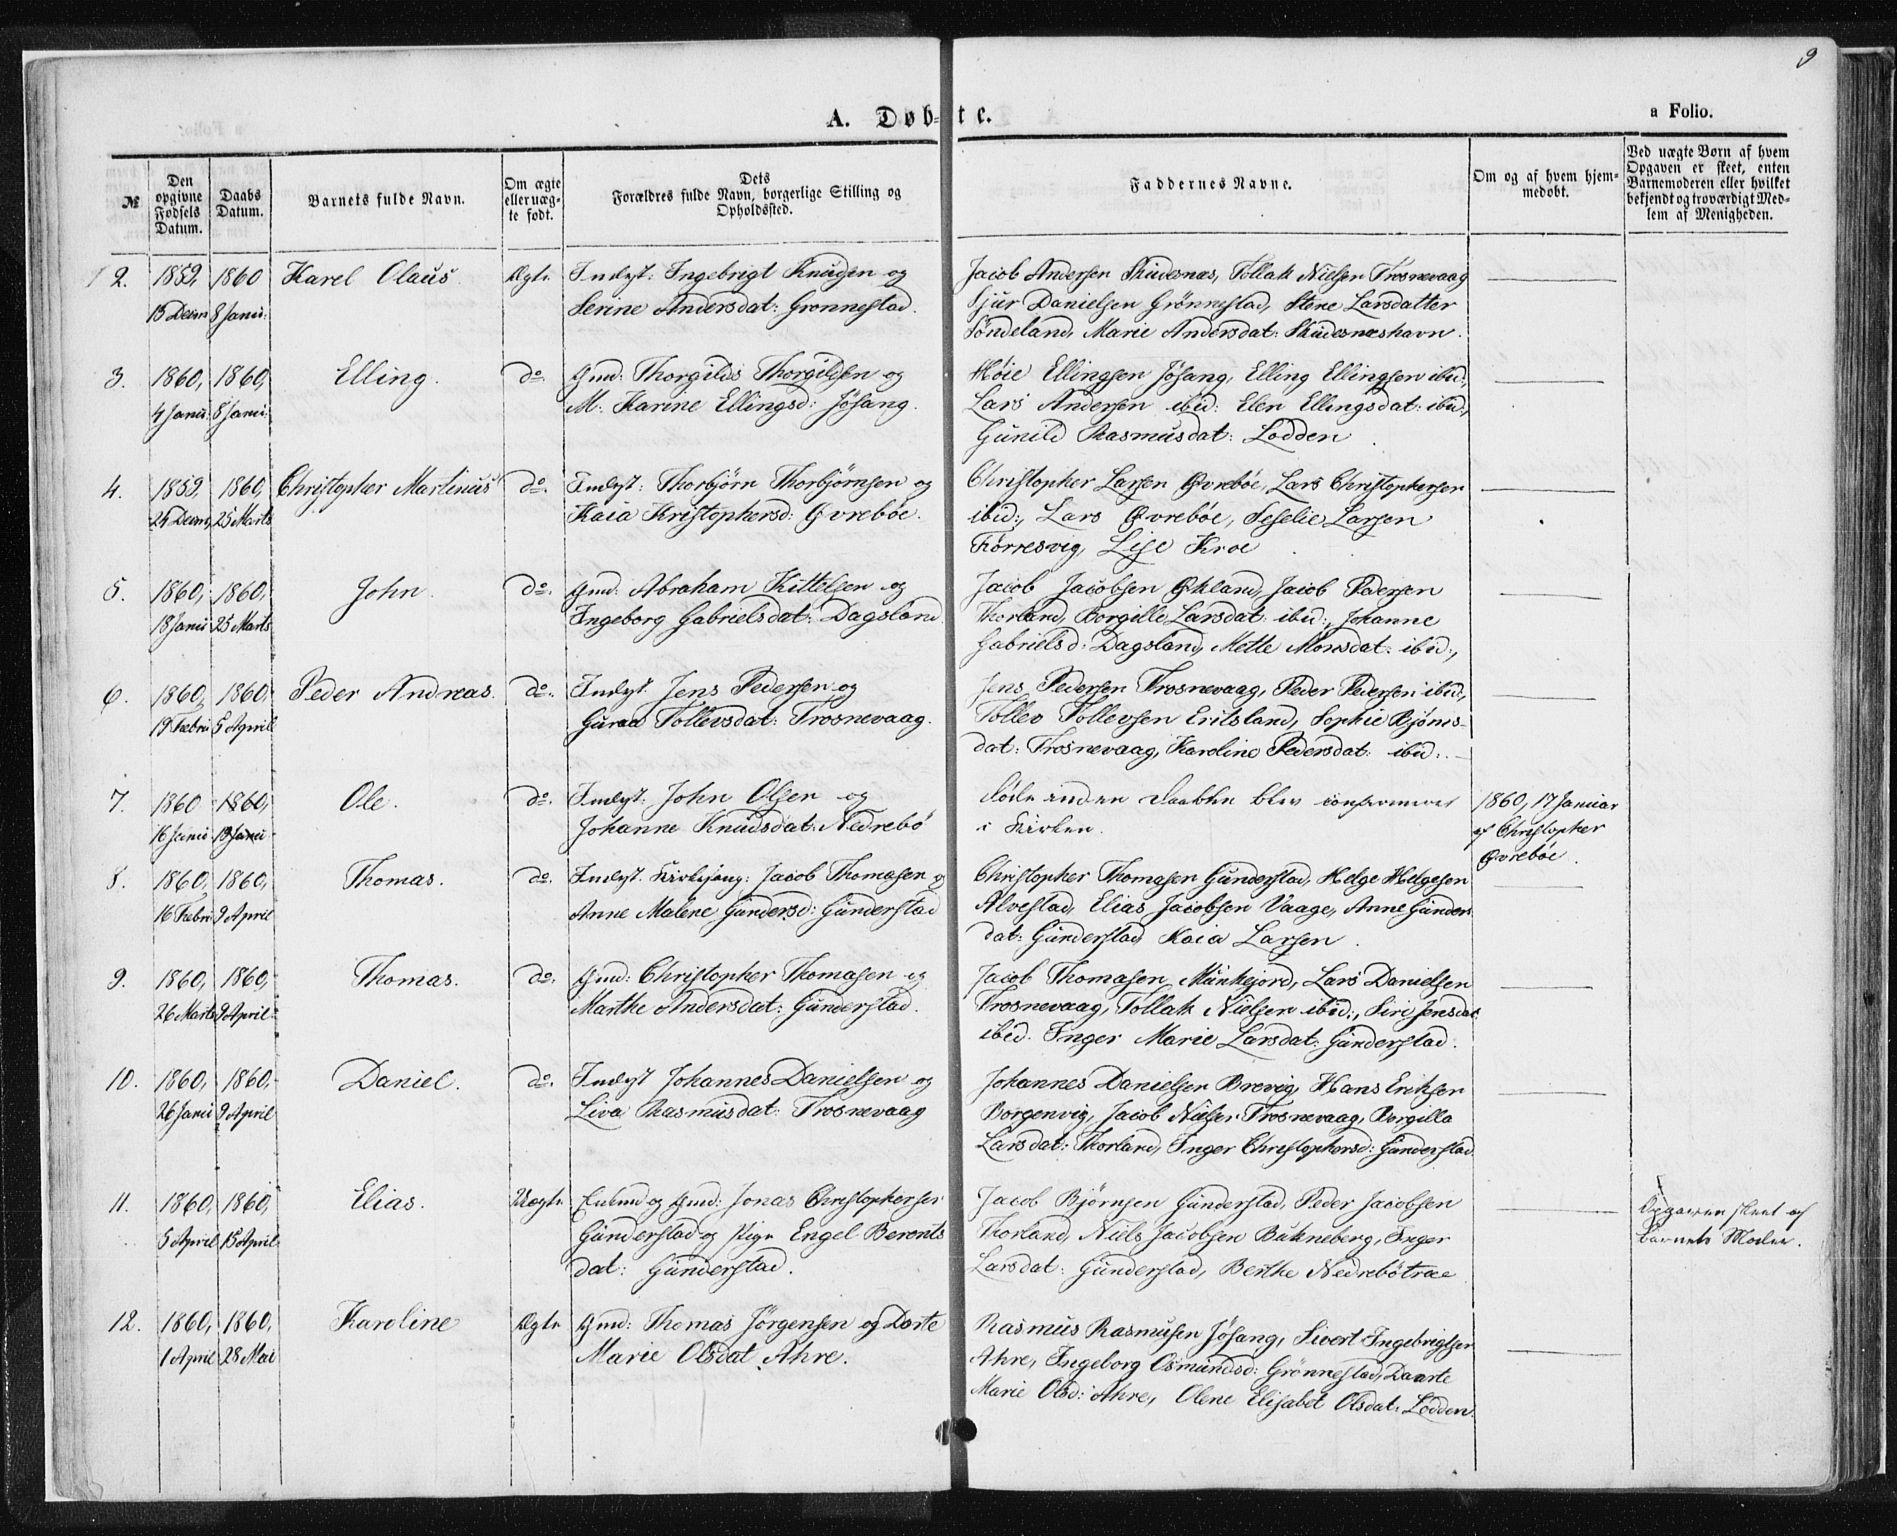 9
A. Døbte.
a Folio.
№
Den opgivne Fødsels Datum.
Daabs Datum.
Barnets fulde Navn.
Om ægte eller uægte født.
Dets Forældres fulde Navn, borgerlige Stilling og Opholdssted.
Faddernes Navne.
Om og af hvem hjemmedøbt.
Ved uægte Børn af hvem Opgaven er skeet, enten Barnemoderen eller hvilket bekjendt og troværdigt Medlem af Menigheden.
2. 1859, 15 Decm 1860 8 Janu: Karel Olaus. Ægte Indyst: Ingebrigt Knudsen og
Serine Andersdat: Grønnestad.
Jacob Andersen Skudesnæs, Tollak Nielsen Trosnevaag
Sjur Danielsen Grønnestad, Stene Larsdatter
Søndeland, Marie Andersdat: Skudesneshavn.
3. 1860, 4 Janu: 1860, 8 Janu: Elling. do Gmd: Thorgilds Thorgildsen og
M. Karine Ellingsd: Jøsang.
Høie Ellingsen Jøsang, Elling Ellingsen ibid:,
Lars Andersen ibid: Elen Ellingsdat: ibid:,
Gunild Rasmusdat: Lodden.
4. 1859, 24 Decm, 1860, 25 Marts Christopher Martinus do. Indyst: Thorbjørn Thorbjørnsen og
Kaia Kristophersd: Øvrebøe.
Christopher Larsen Øvrebøe, Lars Christophersen
ibid:, Lars Øvrebøe, Seselie Larsen
Førresvig, Lise Kroe.
5. 1860, 18 Janu 1860, 25 Marts John. do. Gmd: Abraham Kittelsen og
Ingeborg Gabrielsdat: Dagsland
Jacob Jacobsen Økland, Jacob Pedersen
Thorland, Borgille Larsdat: ibid:, Johanne
Gabrielsd: Dagsland, Mette Monsdat: ibid:,
6. 1860, 19 Febru 1860, 5 April Peder Andreas. do. Indyst. Jens Pedersen og
Guraa Tollevsdat: Trosnevaag.
Jens Pedersen Trosnevaag, Peder Pedersen ibid,
Tollev Tollevsen Eritsland, Sophie Bjønis-
dat: Trosnevaag, Karoline Pedersdat: ibid:.
7. 1860 16 Janu 1860, 19 Janu Ole. do. Indyst: John Olsen og
Johanne Knudsdat: Nedrebø
døde inden Daaben blev confirmeret
i Kirken.
1860, 17 Januar
af Christopher
Øvrebøe.
8. 1860, 16 Febru 1860, 9 April Thomas. do. Indyst. Kirkesang: Jacob Thomasen og
Anne Malene Gundersd: Gunderstad
Christopher Thomasen Gunderstad, Helge Helgesen
Alvestad, Elias Jacobsen Vaage, Anne Gunders
dat: Gunderstad, Kaia Larsen.
9. 1860, 26 Marts 1860, 9 April Thomas. do. Gmd: Christopher Thomasen og
Marthe Andersdat: Gunderstad.
Jacob Thomasen Munkejord, Lars Danielsen
Trosnevaag, Tollak Nielsen ibid:, Siri Jensdat:
ibid. Inger Marie Larsdat: Gunderstad.
10. 1860, 26 Janu 1860, 9 April Daniel. do. Indyst Johannes Danielsen og
Liva Rasmusdat: Trosnevaag
Johannes Danielsen Brevig, Hans Eriksen
Borgenvig, Jacob Nielsen Trosnevaag, Borgilla
Larsdat: Thorland, Inger Christophersd: Gunderstad.
11. 1860, 5 April 1860, 15 April Elias. Uægte Enkemd og Gmd: Jonas Christophersen
Gunderstad og Pige Engel Berents
dat: Gunderstad.
Jacob Bjørnsen Gunderstad, Peder Jacobsen
Thorland, Niels Jacobsen Bukneberg, Inger
Larsdat: Gunderstad, Berthe Nedrebøtræe
Opgaven skeet af
Barnets Moder.
12. 1860, 1 April 1860, 28 Mai Karoline Ægte Gmd: Thomas Jørgensen og Dorte
Marie Olsdat. Ahre.
Rasmus Rasmusen Jøsang, Sivert Ingebrigtsen
Ahre, Ingeborg Osmundsd: Grønnestad, Daarte
Marie Olsd: Ahre, Olene Elisabet Olsdat: Lodden.